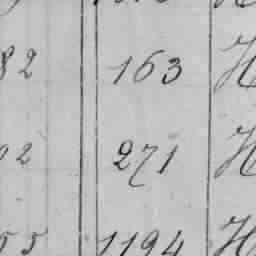 82 163 H
02 271 H
55 1194 H